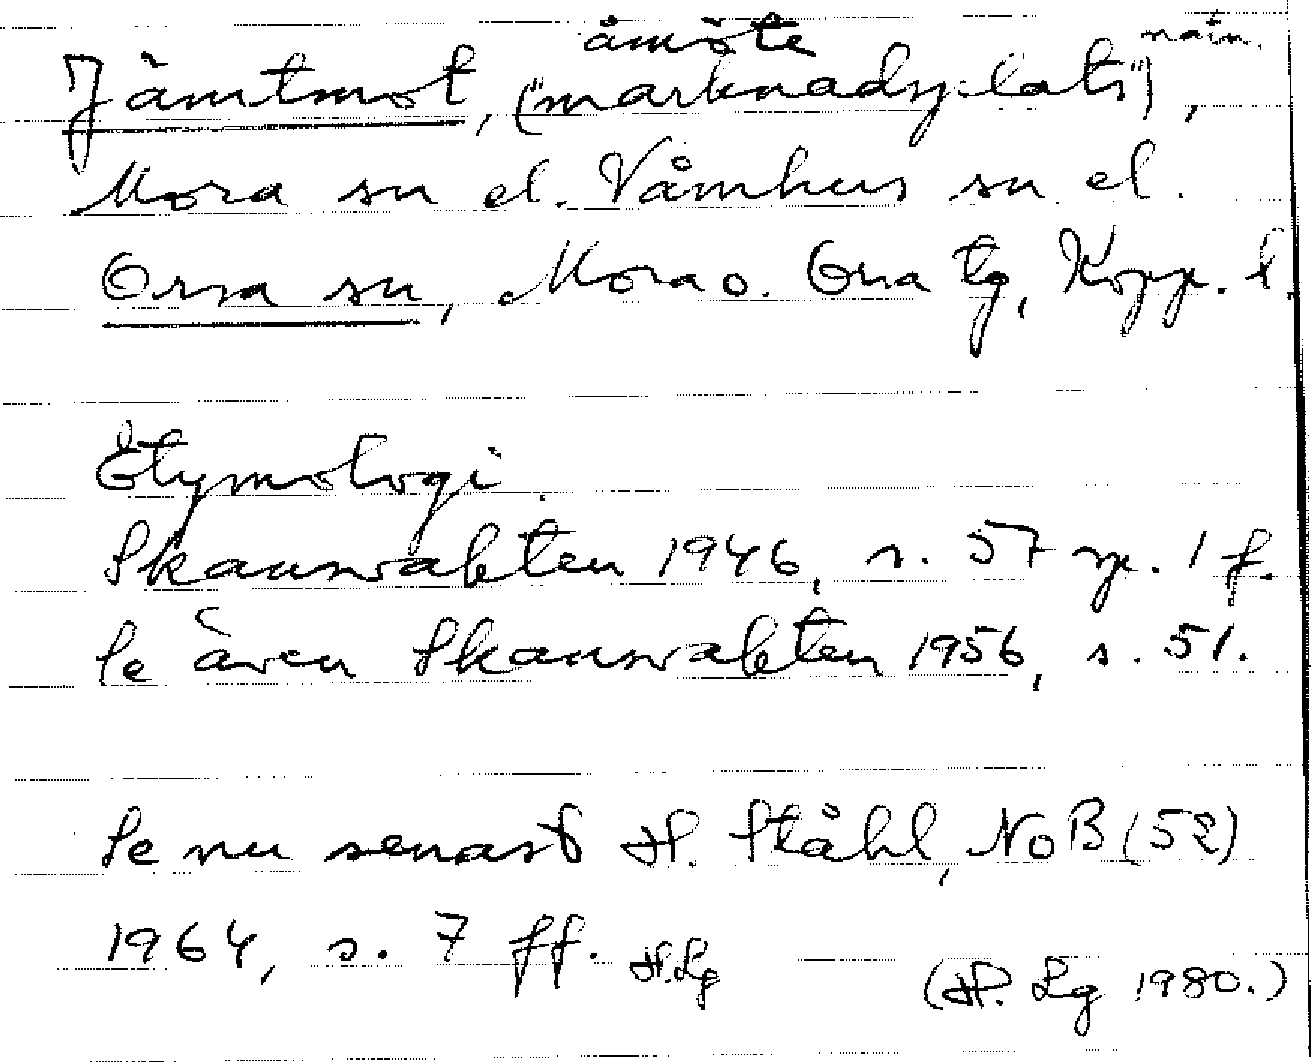 åmöte natn.
Jämtmot, ("marknadsplats"),
Mora sn el. Våmhus sn el.
Orsa sn, Mora o. Orsa tg, Kopp. l.
Etymologi.
Skansvakten 1946, s. 57 sp. 1 f.
Se även Skansvakten 1956, s. 51.
Se nu senast H. Ståhl, NoB (52)
1964, s. 7 ff. H.Lg (H. Lg 1980.)